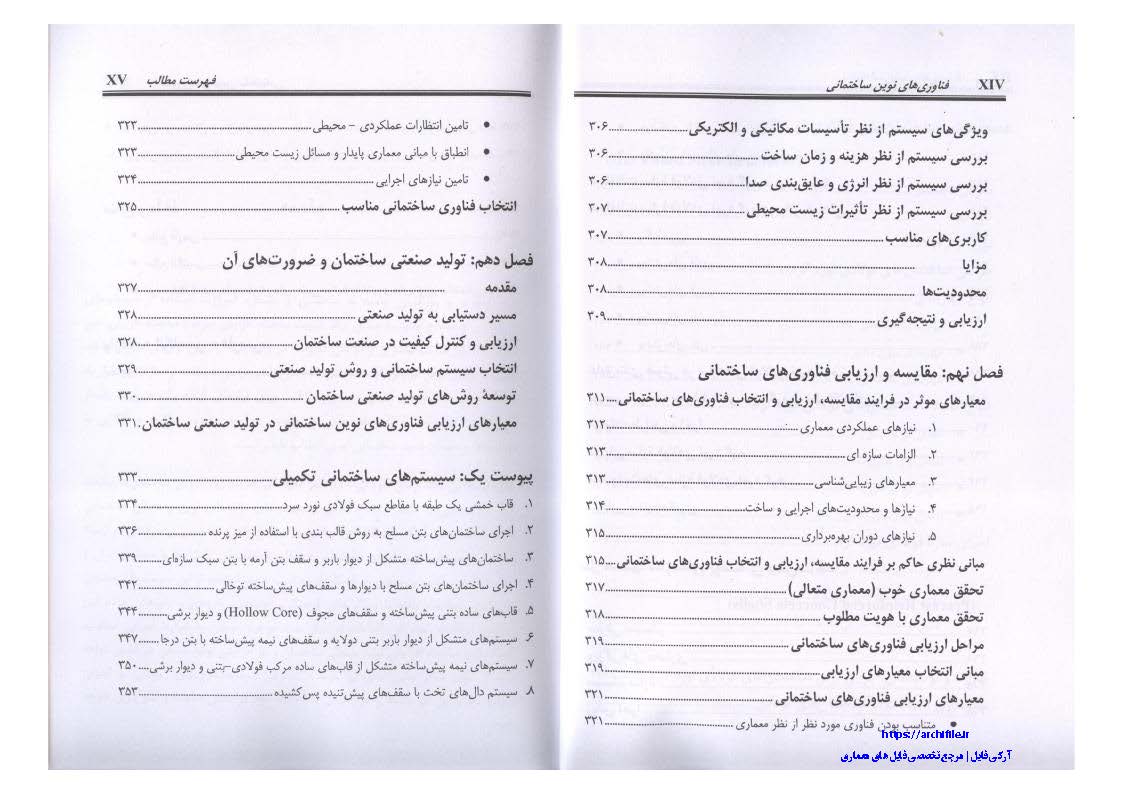 XIV فناوری‌های نوین ساختمانی
ویژگی‌های سیستم از نظر تأسیسات مکانیکی و الکتریکی ... ۳۰۶
بررسی سیستم از نظر هزینه و زمان ساخت ... ۳۰۶
بررسی سیستم از نظر انرژی و عایق‌بندی صدا ... ۳۰۶
بررسی سیستم از نظر تأثیرات زیست محیطی ... ۳۰۷
کاربری‌های مناسب ... ۳۰۷
مزایا ... ۳۰۸
محدودیت‌ها ... ۳۰۸
ارزیابی و نتیجه‌گیری ... ۳۰۹
فصل نهم: مقایسه و ارزیابی فناوری‌های ساختمانی
معیارهای موثر در فرایند مقایسه، ارزیابی و انتخاب فناوری‌های ساختمانی ... ۳۱۱
۱. نیازهای عملکردی معماری ... ۳۱۲
۲. الزامات سازه ای ... ۳۱۳
۳. معیارهای زیبایی‌شناسی ... ۳۱۳
۴. نیازها و محدودیت‌های اجرایی و ساخت ... ۳۱۴
۵. نیازهای دوران بهره‌برداری ... ۳۱۵
مبانی نظری حاکم بر فرایند مقایسه، ارزیابی و انتخاب فناوری‌های ساختمانی ... ۳۱۵
تحقق معماری خوب (معماری متعالی) ... ۳۱۷
تحقق معماری با هویت مطلوب ... ۳۱۸
مراحل ارزیابی فناوری‌های ساختمانی ... ۳۱۹
مبانی انتخاب معیارهای ارزیابی ... ۳۱۹
معیارهای ارزیابی فناوری‌های ساختمانی ... ۳۲۱
• متناسب بودن فناوری مورد نظر از نظر معماری ... ۳۲۱
https://archifile.ir
آرکی‌فایل | مرجع تخصصی فایل های معماری
فهرست مطالب XV
• تامین انتظارات عملکردی – محیطی ... ۳۲۳
• انطباق با مبانی معماری پایدار و مسائل زیست محیطی ... ۳۲۳
• تامین نیازهای اجرایی ... ۳۲۴
انتخاب فناوری ساختمانی مناسب ... ۳۲۵
فصل دهم: تولید صنعتی ساختمان و ضرورت‌های آن
مقدمه ... ۳۲۷
مسیر دستیابی به تولید صنعتی ... ۳۲۸
ارزیابی و کنترل کیفیت در صنعت ساختمان ... ۳۲۸
انتخاب سیستم ساختمانی و روش تولید صنعتی ... ۳۲۹
توسعهٔ روش‌های تولید صنعتی ساختمان ... ۳۳۰
معیارهای ارزیابی فناوری‌های نوین ساختمانی در تولید صنعتی ساختمان. ۳۳۱
پیوست یک: سیستم‌های ساختمانی تکمیلی ... ۳۳۳
۱. قاب خمشی یک طبقه با مقاطع سبک فولادی نورد سرد ... ۳۳۴
۲. اجرای ساختمان‌های بتن مسلح به روش قالب بندی با استفاده از میز پرنده ... ۳۳۶
۳. ساختمان‌های پیش‌ساخته متشکل از دیوار باربر و سقف بتن آرمه با بتن سبک سازه‌ای ... ۳۳۹
۴. اجرای ساختمان‌های بتن مسلح با دیوارها و سقف‌های پیش‌ساخته توخالی ... ۳۴۲
۵. قاب‌های ساده بتنی پیش‌ساخته و سقف‌های مجوف (Hollow Core) و دیوار برشی ... ۳۴۴
۶. سیستم‌های متشکل از دیوار باربر بتنی دولایه و سقف‌های نیمه پیش‌ساخته با بتن درجا ... ۳۴۷
۷. سیستم‌های نیمه پیش‌ساخته متشکل از قاب‌های ساده مرکب فولادی-بتنی و دیوار برشی ... ۳۵۰
۸. سیستم دال‌های تخت با سقف‌های پیش‌تنیده پس‌کشیده ... ۳۵۳